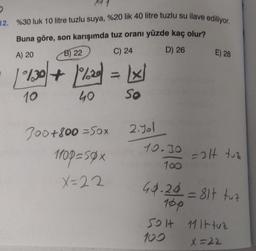 12. %30 luk 10 litre tuzlu suya, %20 lik 40 litre tuzlu su ilave ediliyor.
Buna göre, son karışımda tuz oranı yüzde kaç olur?
A) 20 B) 22 C) 24 D) 26 E) 28
%30 + %20 = x
10 40 50
300+800=50x
1100=50x
x=22
2.yol
10.30
100
=3lt tuz
40.20
100
= 8lt tuz
50lt 11lt tuz
100 x=22